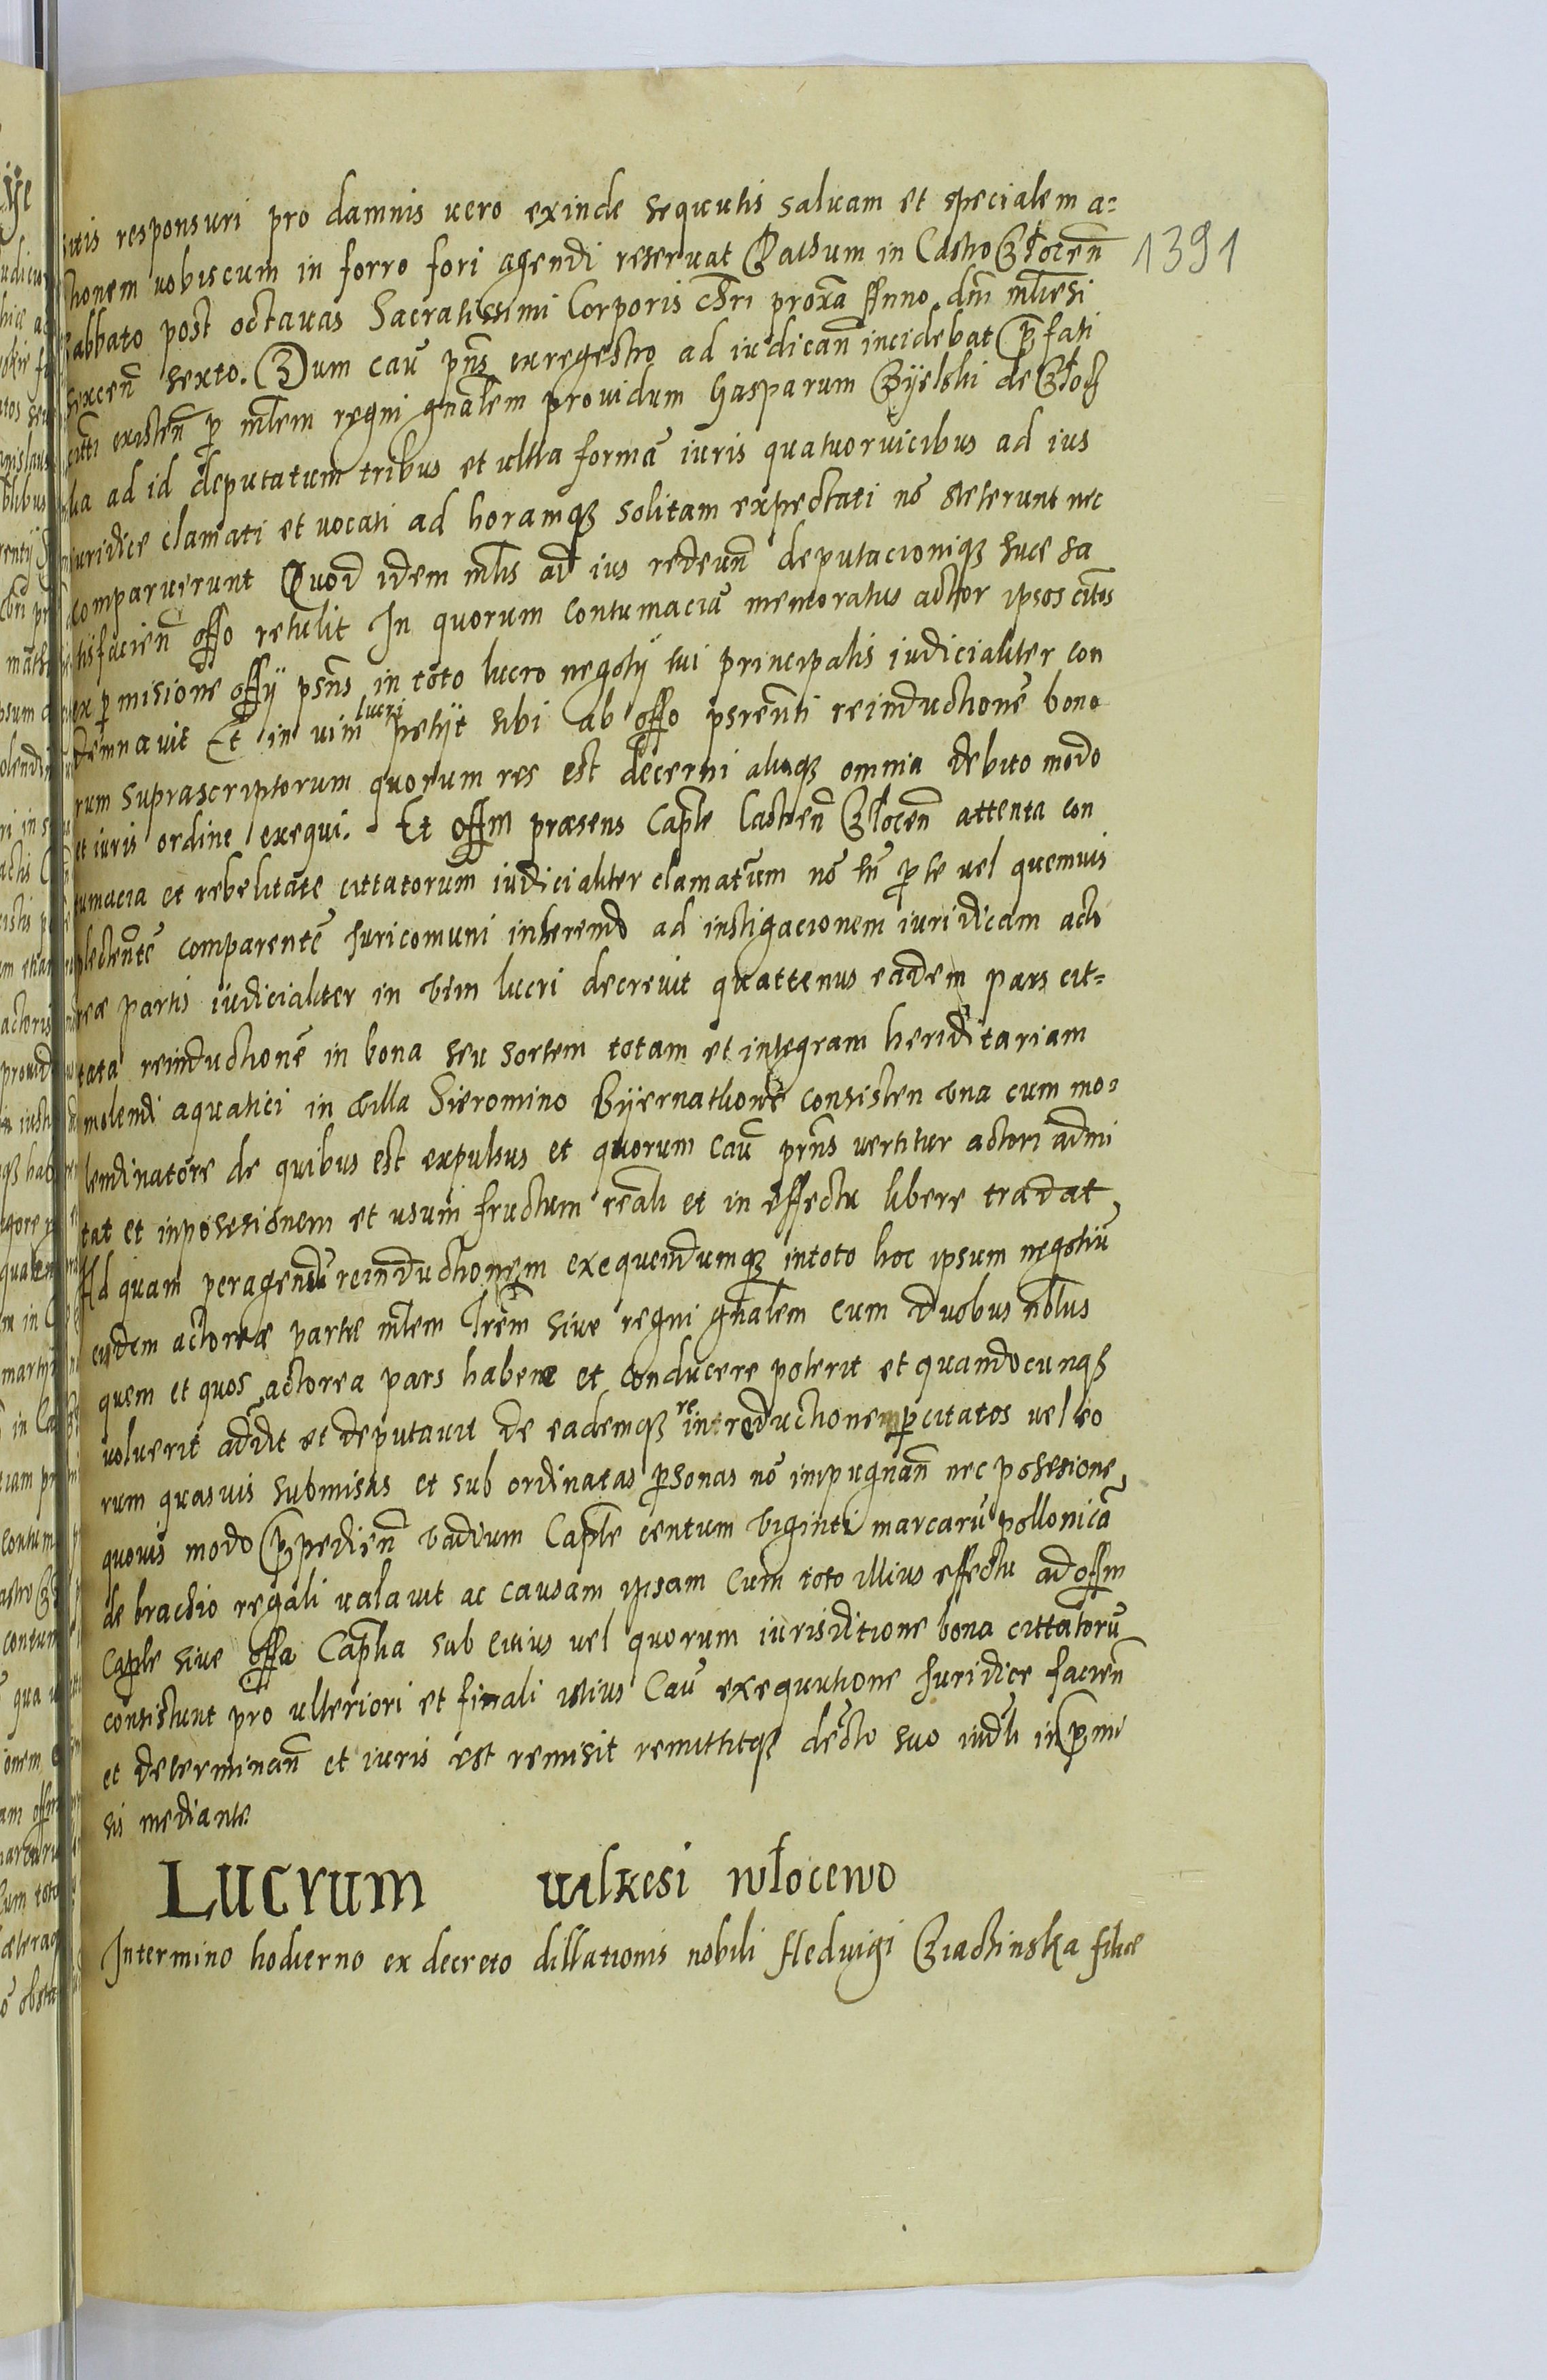 sitis responsuri pro damnis uero exinde sequutis saluam et specialem a=
ctionem uobiscum in forro fori agendi reseruat Datum in Castro Złocen̄
Sabbato post octauas Sacratissimi Corporis Chri proxa Anno dni mlesi
sexcen̄ sexto. Dum cau͞ pn̄s ex regestro ad iudican̄ incidebat p̄fati
citti existen̄ p mlem regni gn̄alem prouidum Gasparum Byelski de Złocz
ad id deputatum tribus et ultra formā iuris quatuoruicibus ad ius
iuridice clamati et uocati ad horamqȝ solitam expectati nō steterunt nec
comparuerunt Quod idem mlis ad ius redeun̄ deputacioniqȝ suæ sa
tisfacien̄ offo retulit In quorum contumaciā memoratus actor ipsos citos
ex pmisione offy psn̄s in toto lucro negoty sui principalis iudicialiter con
demnauit Et in uim lucri petyt sibi ab offo psrenti reinductionē bono
rum suprascriptorum quorum res est decerni aliaqȝ omnia debito modo
et iuris ordine exequi. Et offm præsens Capłe Castren̄ Złocen̄ attenta con
tumacia et rebelitate cittatorum iudicialiter clamatum nō tn̄ p se uel quemuis
plectentē comparentē Juricomuni inherendo ad instigacionem iuridicam acto
reæ partis iudicialiter in vim lucri decreuit quattenus eadem pars cit=
tata reinductionē in bona seu sortem totam et integram heriditariam
molendi aquatici in villa Sieromino Byernathone consisten vna cum mo=
lendinatore de quibus est expulsus et quorum cau͞ prn̄s uertitur actori admi
tat et inposesionem et usum fructum reali et in effectu libere tradat
Ad quam peragendū reinductionem exequendumqȝ intoto hoc ipsum negotiū
eidem actoreæ parti mlem Trem siue regni gn̄alem cum duobus nblus
quem et quos actorea pars habere et conducere poterit et quandocunqȝ
uoluerit addit et deputauit de eademqȝ reintroductionem p citatos uel eo
rum quasuis submisas et sub ordinatas psonas nō inpugnan̄ nec posesione
quouis modo p̄pedien̄ vadium Capłe centum viginti marcarū pollonica
de brachio regali ualauit ac causam ipsam cum toto illius effectu ad offm
Capłe siue offa Capłia sub cuius uel quorum iurisditione bona cittatorū
consistunt pro ulteriori et finali istius Cau͞ exequutione Juridice facien̄
et determinan̄ et iuris est remisit remittitqȝ decto suo iudli in p̄mi
sis mediante.
LUCRUM uilkesi włocewo
Intermino hodierno ex decreto dillationis nobili Heduigi Ziachinska filiæ
1391